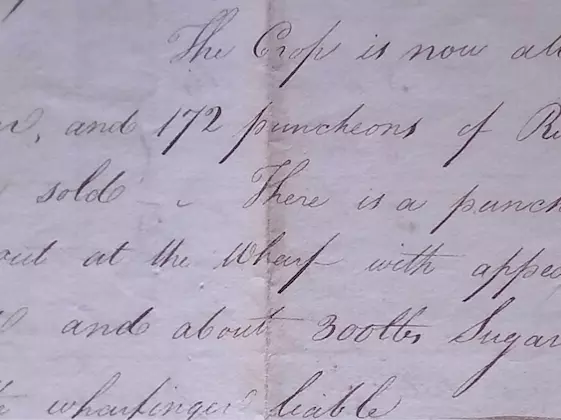 The Crop is now al
and 172 puncheons of Ru
sold - There is a punch
out at the Wharf with appea
and about 300lbs Sugar
wharfinger liable